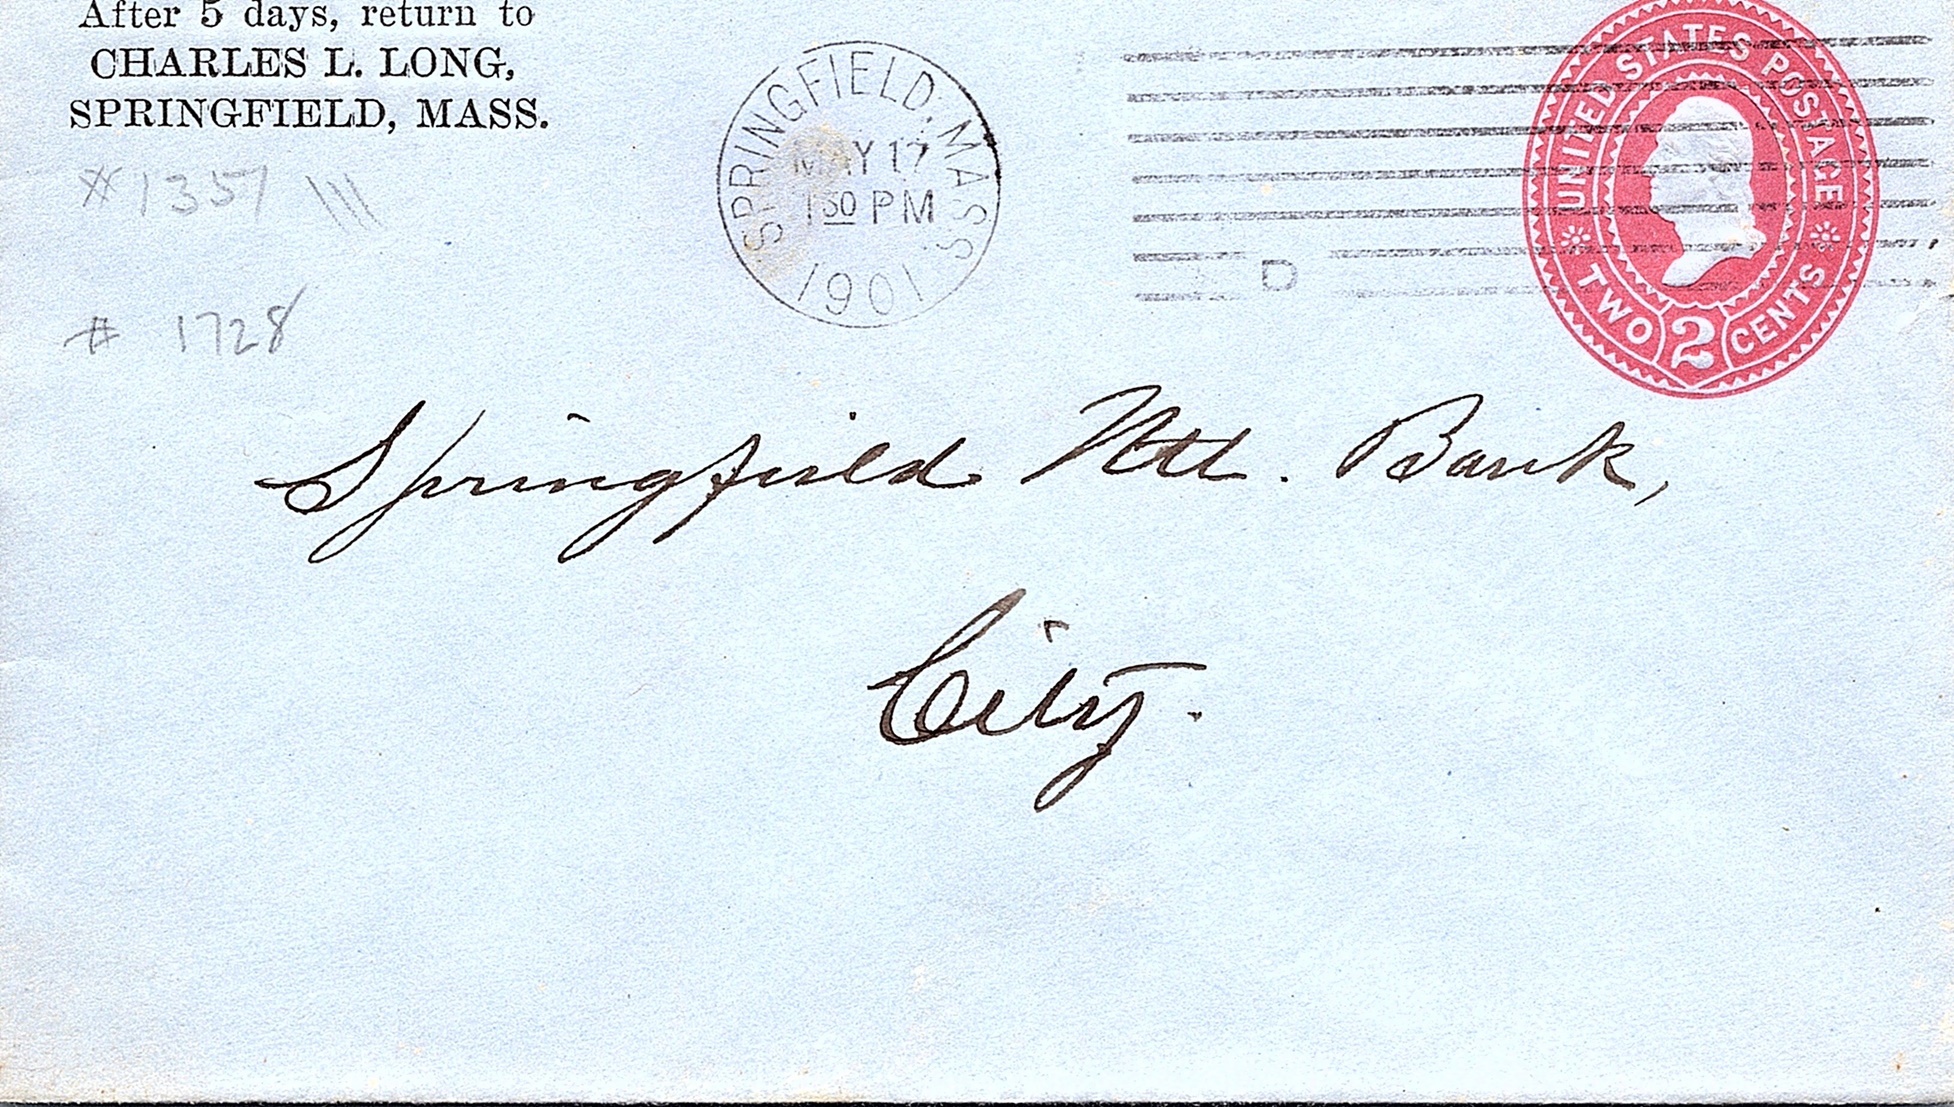 After 5 days, return to
CHARLES L. LONG,
SPRINGFIELD, MASS.
SPRINGFIELD, MASS.
MAY 17
1 30 PM
1901
D
UNITED STATES POSTAGE
TWO 2 CENTS
# 1357 \\\
# 1728
Springfield Ntl. Bank,
City.